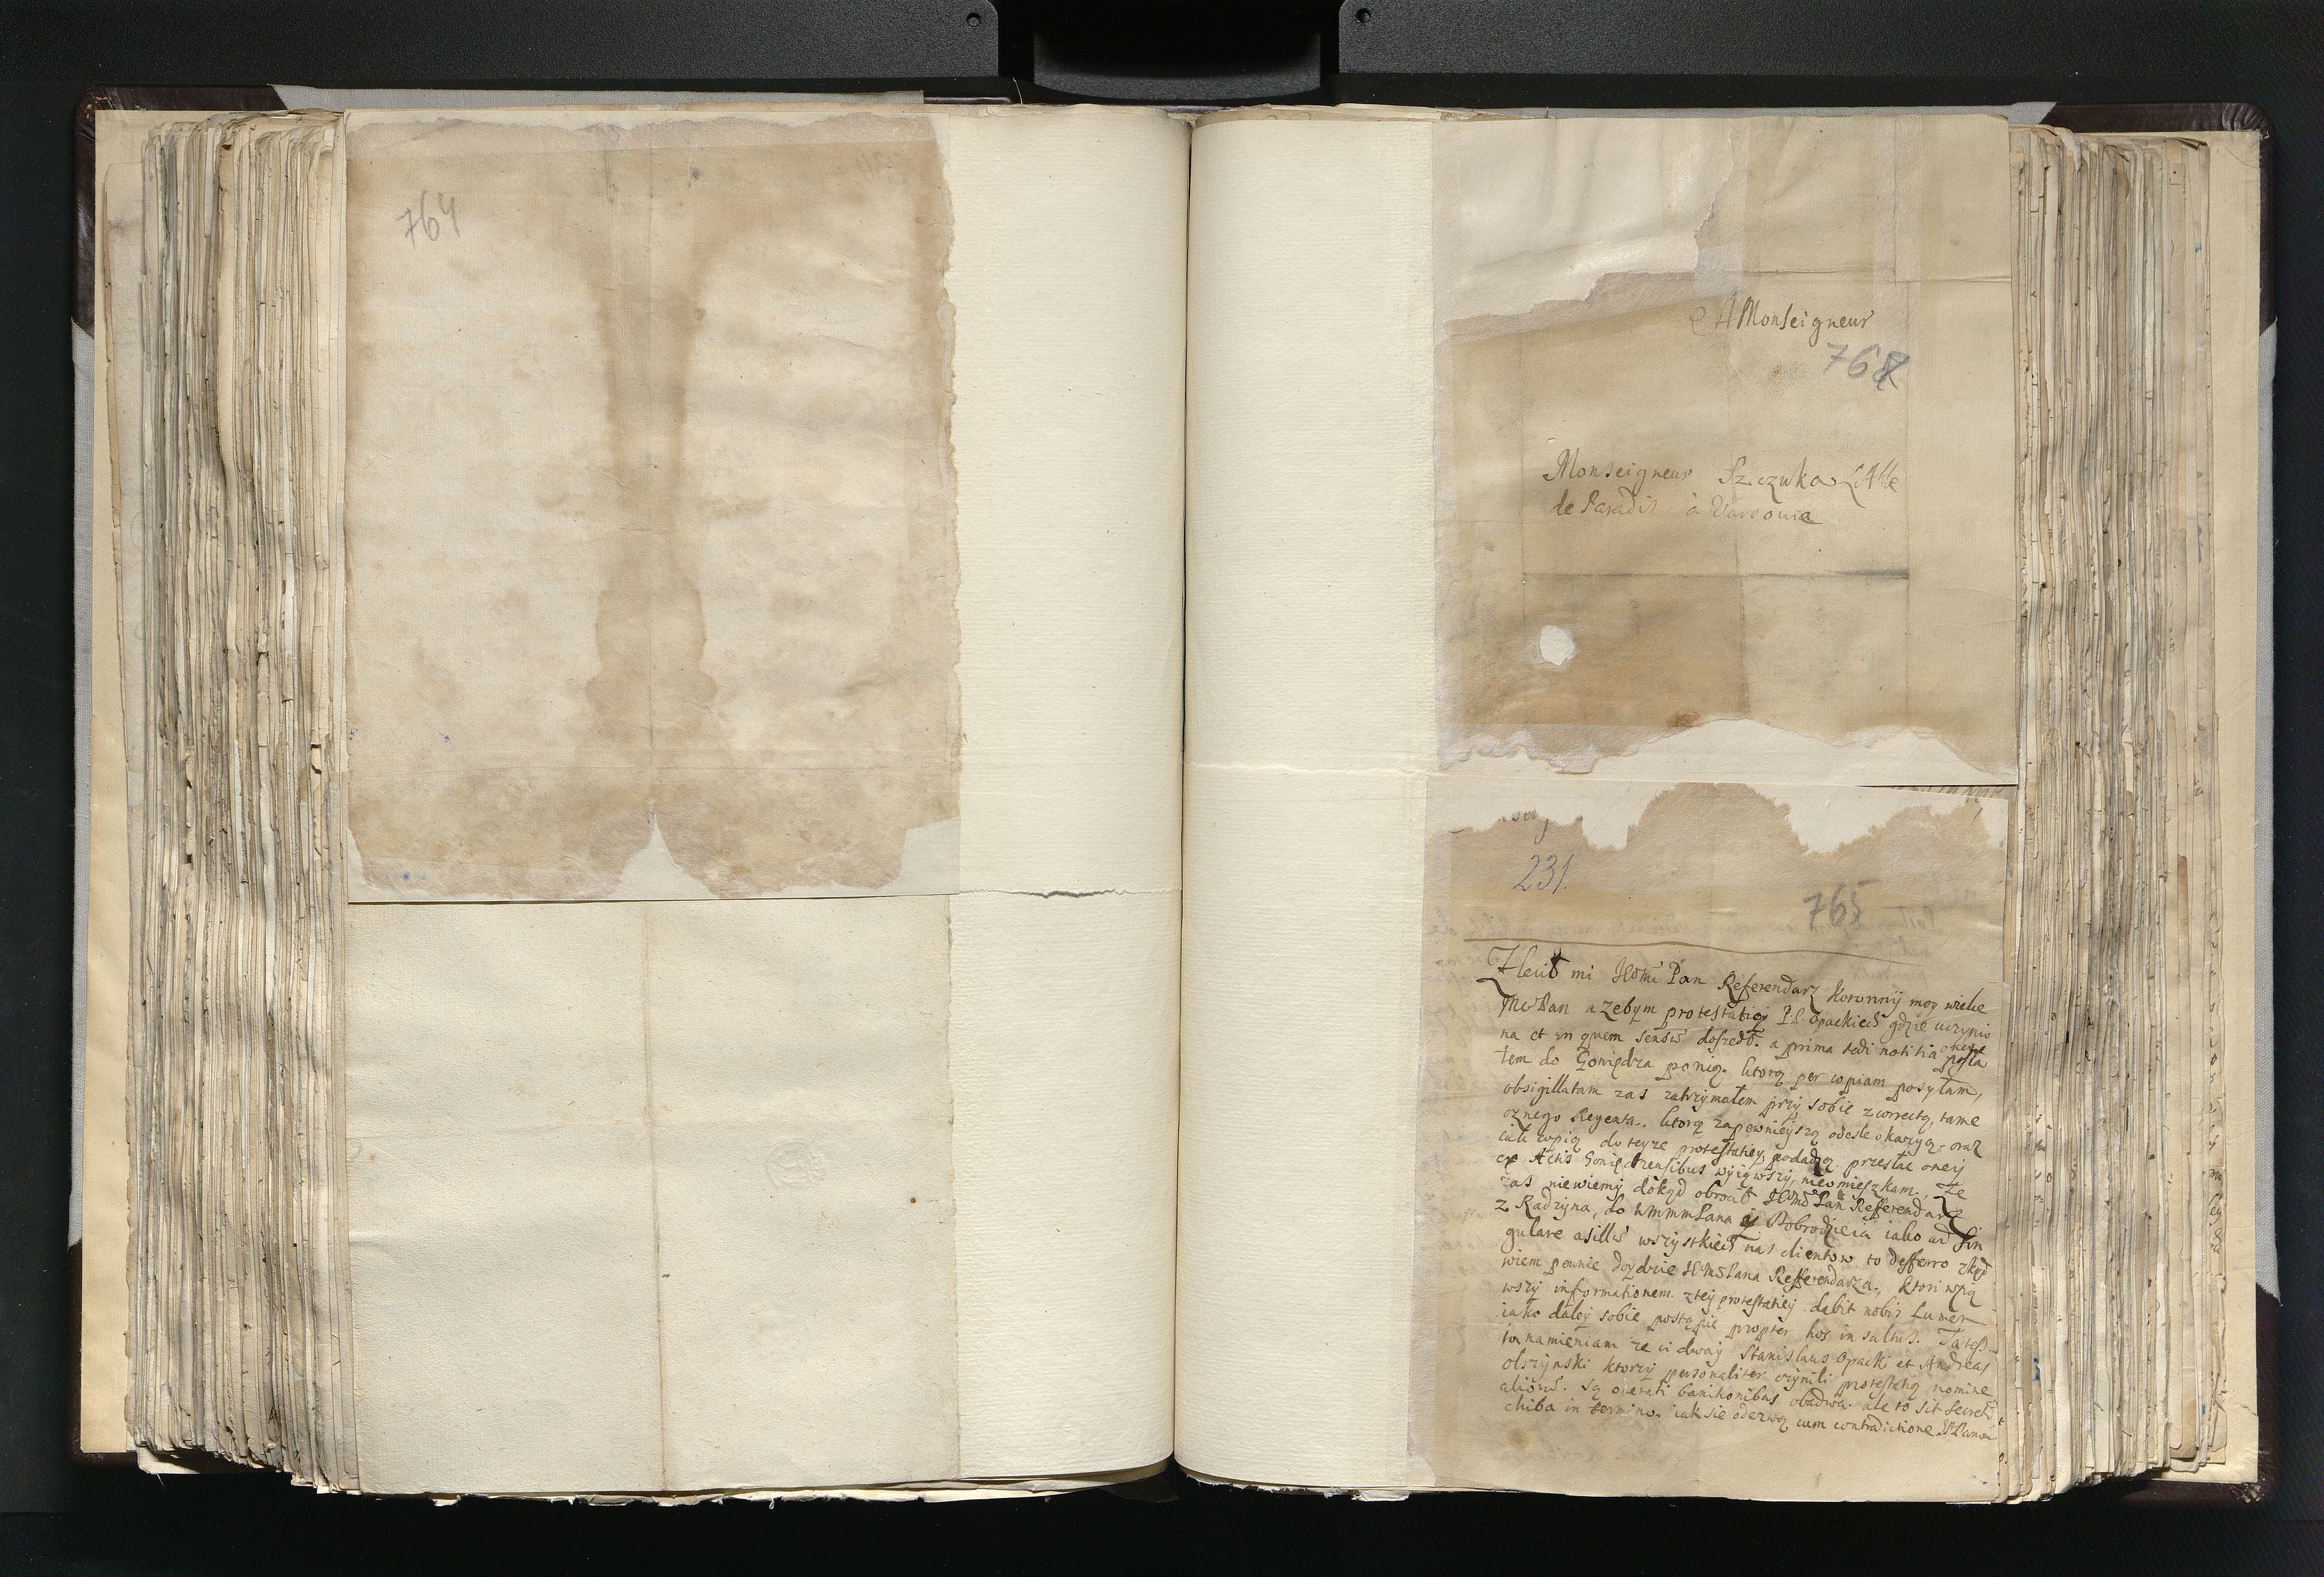 764
A Monseigneur
768
Monseigneur Szczuka L'Abbe
de Paradis à Varsovie
231.
765
Zlecił mi JEOMć Pan Referendarz Koronnij moy wielce
Mć Pan azebym protestatiey P.P. Opackich gdzie uczynio
na et in quem sensum doszedł. a prima tedi notitia posła
okazią
łem do Goniądza ponię. ktorą per copiam posyłam,
obsigillatam zas zatrzymałem przy sobie z correctą tame
cznego Regenta. ktorą zapewnieyszą odesle okazyą. oraz
iak copią do teyze protestatiey podadzą przesłac oney
ex Actis Goniądzensibus wyiąwszy nieomieszkam. Ze
zas niewiemy dokąd obrocił JEMć Pan Referendarz
z Radzyna, do WMMMPana y Dobrodzieia iako ad Sin
gulare asillum wszystkich nas clientow to deffero zkąd
wiem pewnie doydzie JEMć Pana Refferendarza, ktori wzią
wszy informationem z tey protestatiey dabit nobis Lumen
iako daley sobie postąpic propter hos insultus. Ia tesz
to namieniam ze ci dway Stanislaus Opacki et Andreas
Olszynski ktorzy personaliter czynili protestatią nomine
aliorum. Są onerati banitionibus obadwa. ale to sit secretum
chiba in termino. iak sie odezwą cum contradictione.